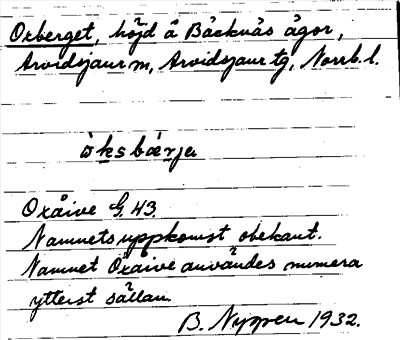 Oxberget, höjd å Bäcknäs ägor,
Arvidsjaur sn, Arvidsjaur tg, Norrb. l.
òksbærja
Oxåive G. 43.
Namnets uppkomst obekant.
Namnet Oxåive användes numera
ytterst sällan.
B. Nygren 1932.